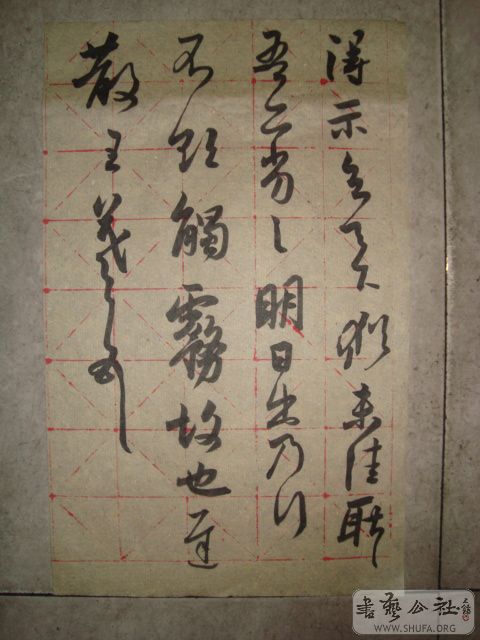 得示知足下猶未佳耿〻
吾亦劣〻明日出乃行
不欲觸霧故也遲
散王羲之頓首
書藝公社
WWW.SHUFA.ORG